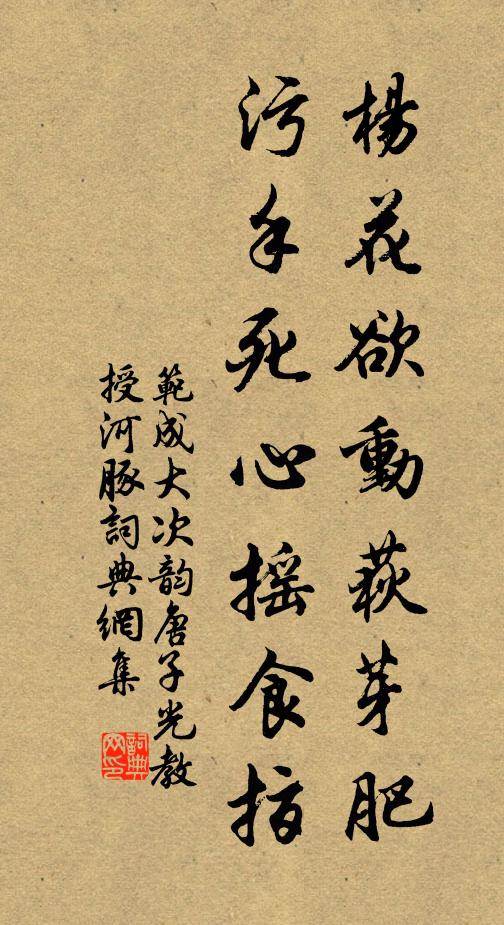 楊花欲動荻芽肥
污手死心搖食指
範成大次韵唐子光教
授河豚詞典網集
詞典
网印